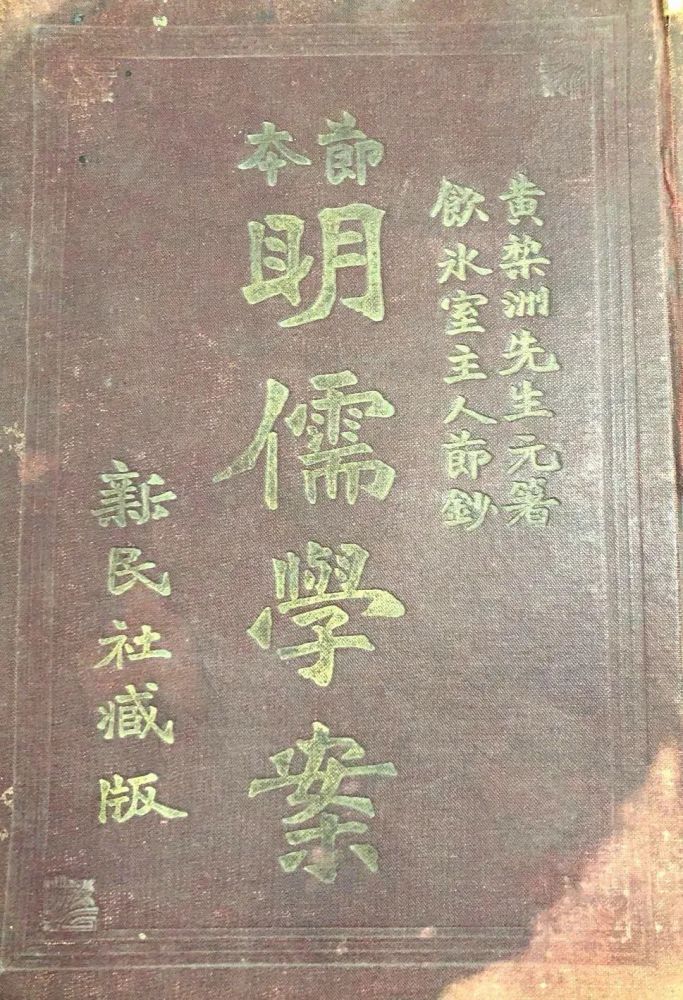 黄棃洲先生元著
飲氷室主人節鈔
節本
明儒學案
新民社藏版